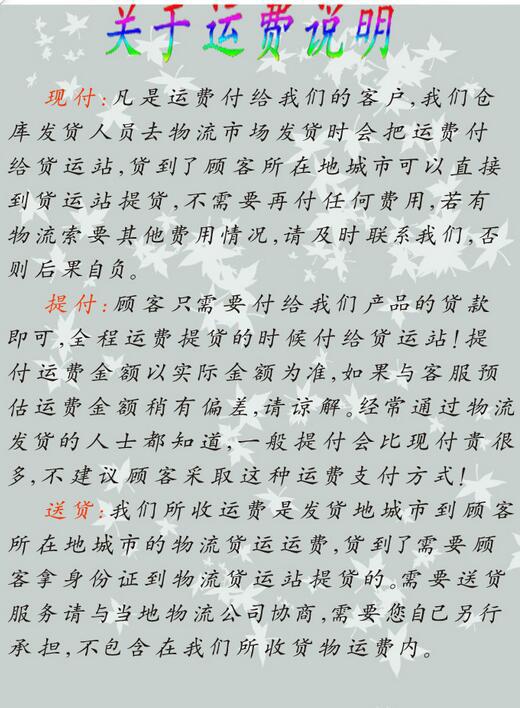 关于运费说明
现付:凡是运费付给我们的客户,我们仓
库发货人员去物流市场发货时会把运费付
给货运站,货到了顾客所在地城市可以直接
到货运站提货,不需要再付任何费用,若有
物流索要其他费用情况,请及时联系我们,否
则后果自负。
提付:顾客只需要付给我们产品的货款
即可,全程运费提货的时候付给货运站!提
付运费金额以实际金额为准,如果与客服预
估运费金额稍有偏差,请谅解。经常通过物流
发货的人士都知道,一般提付会比现付贵很
多,不建议顾客采取这种运费支付方式!
送货:我们所收运费是发货地城市到顾客
所在地城市的物流货运运费,货到了需要顾
客拿身份证到物流货运站提货的。需要送货
服务请与当地物流公司协商,需要您自己另行
承担,不包含在我们所收货物运费内。